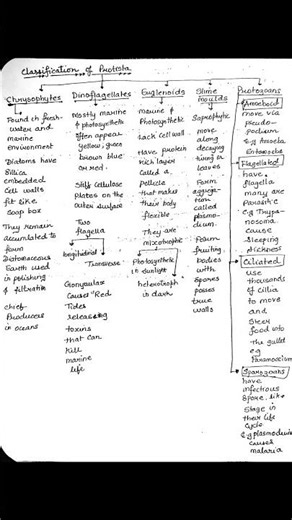 Classification of Protista
Chrysophytes
Found in fresh-
water and
marine
environment
Diatoms have
Sillica
embedded
Cell walls
fit like
soap box
They remain
accumulated to
form
Diatomaceous
Earth used
in polishing
& filtration
chief
Producers
in oceans
Dinoflagellates
Mostly marine
& photosynthetic
often appear
yellow, green
brown blue
or red.
Stiff cellulose
plates on the
outer surface
Two
flagella
longitudinal
Transverse
Gonyaulax
Causes "Red
Tides
releasing
toxins
that can
kill
marine
life
Euglenoids
marine &
Photosynthetic
Lack Cell wall
Have protein
rich layer
called a.
Pellicle
that makes
their body
flexible
They are
mixotrophic
Photosynthetic
in sunlight
heterotroph
in dark
Slime
moulds
Saprophytic
move
along
decaying
twigs or
leaves
Form
aggrega-
tion
called
plasmo-
dium.
Form
fruiting
bodies
with
Spores
posses
true
walls
Protozoans
Amoeboid
move via
pseudo-
podium
e.g Amoeba
Entamoeba
Flagellated
have
flagella
many are
Parasitic
e.g Trypa-
nosoma
cause
Sleeping
sickness
Ciliated
use
thousands
of cilia
to move
and
Steer
food into
The gullet
eg
Paramoecium
Sporozoans
have
infectious
Spore. like
Stage in
their life
Cycle
e.g plasmodium
causes
malaria